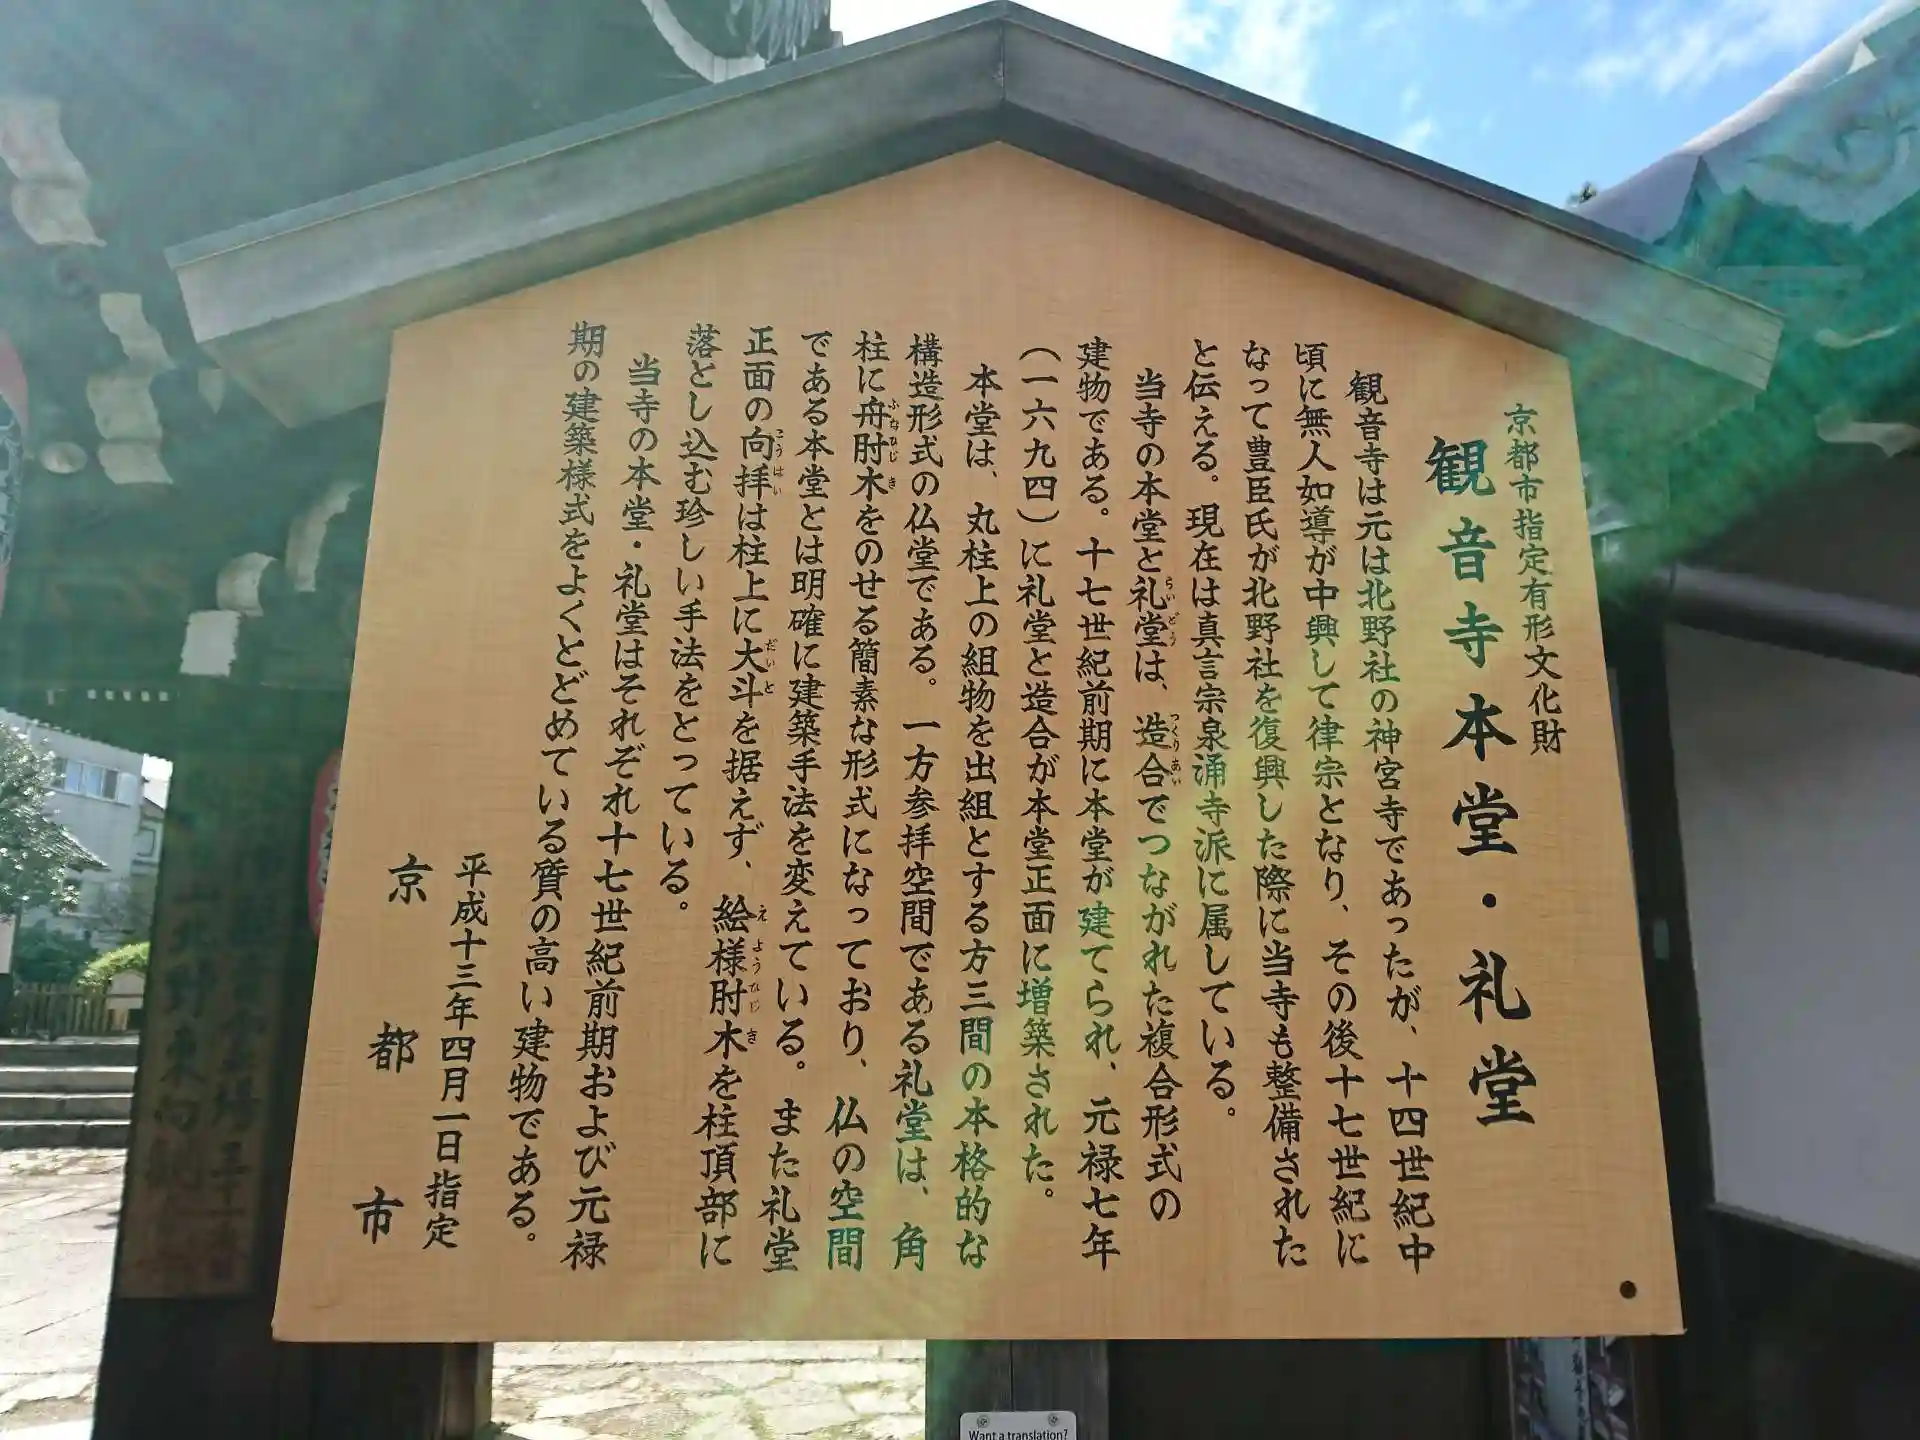 京都市指定有形文化財
観音寺本堂・礼堂
観音寺は元は北野社の神宮寺であったが、十四世紀中
頃に無人如導が中興して律宗となり、その後十七世紀に
なって豊臣氏が北野社を復興した際に当寺も整備された
と伝える。現在は真言宗泉涌寺派に属している。
当寺の本堂と礼堂は、造合でつながれた複合形式の
らいどう
つくりあい
建物である。十七世紀前期に本堂が建てられ、元禄七年
(一六九四)に礼堂と造合が本堂正面に増築された。
本堂は、丸柱上の組物を出組とする方三間の本格的な
構造形式の仏堂である。一方参拝空間である礼堂は、角
柱に舟肘木をのせる簡素な形式になっており、仏の空間
ふなひじき
である本堂とは明確に建築手法を変えている。また礼堂
正面の向拝は柱上に大斗を据えず、絵様肘木を柱頂部に
こうはい
だいと
えようひじき
落とし込む珍しい手法をとっている。
当寺の本堂・礼堂はそれぞれ十七世紀前期および元禄
期の建築様式をよくとどめている質の高い建物である。
平成十三年四月一日指定
京都市
Want a translation?